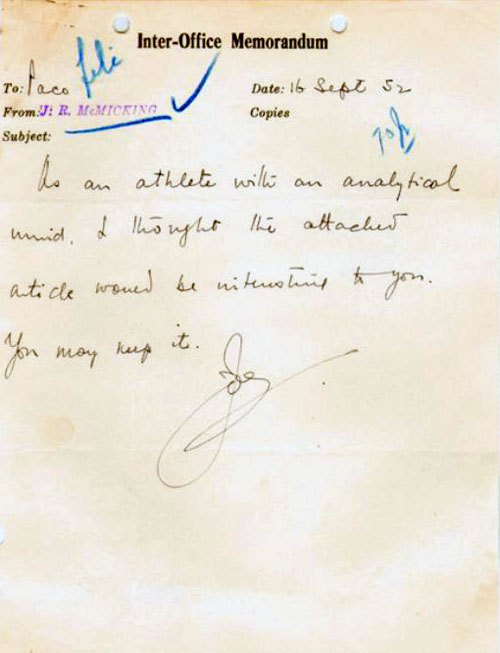 Inter-Office Memorandum
To: Paco
From: J. R. McMICKING
Date: 16 Sept 52
Copies
Subject:
As an athlete with an analytical
mind, I thought the attached
article would be interesting to you.
You may keep it.
Joe